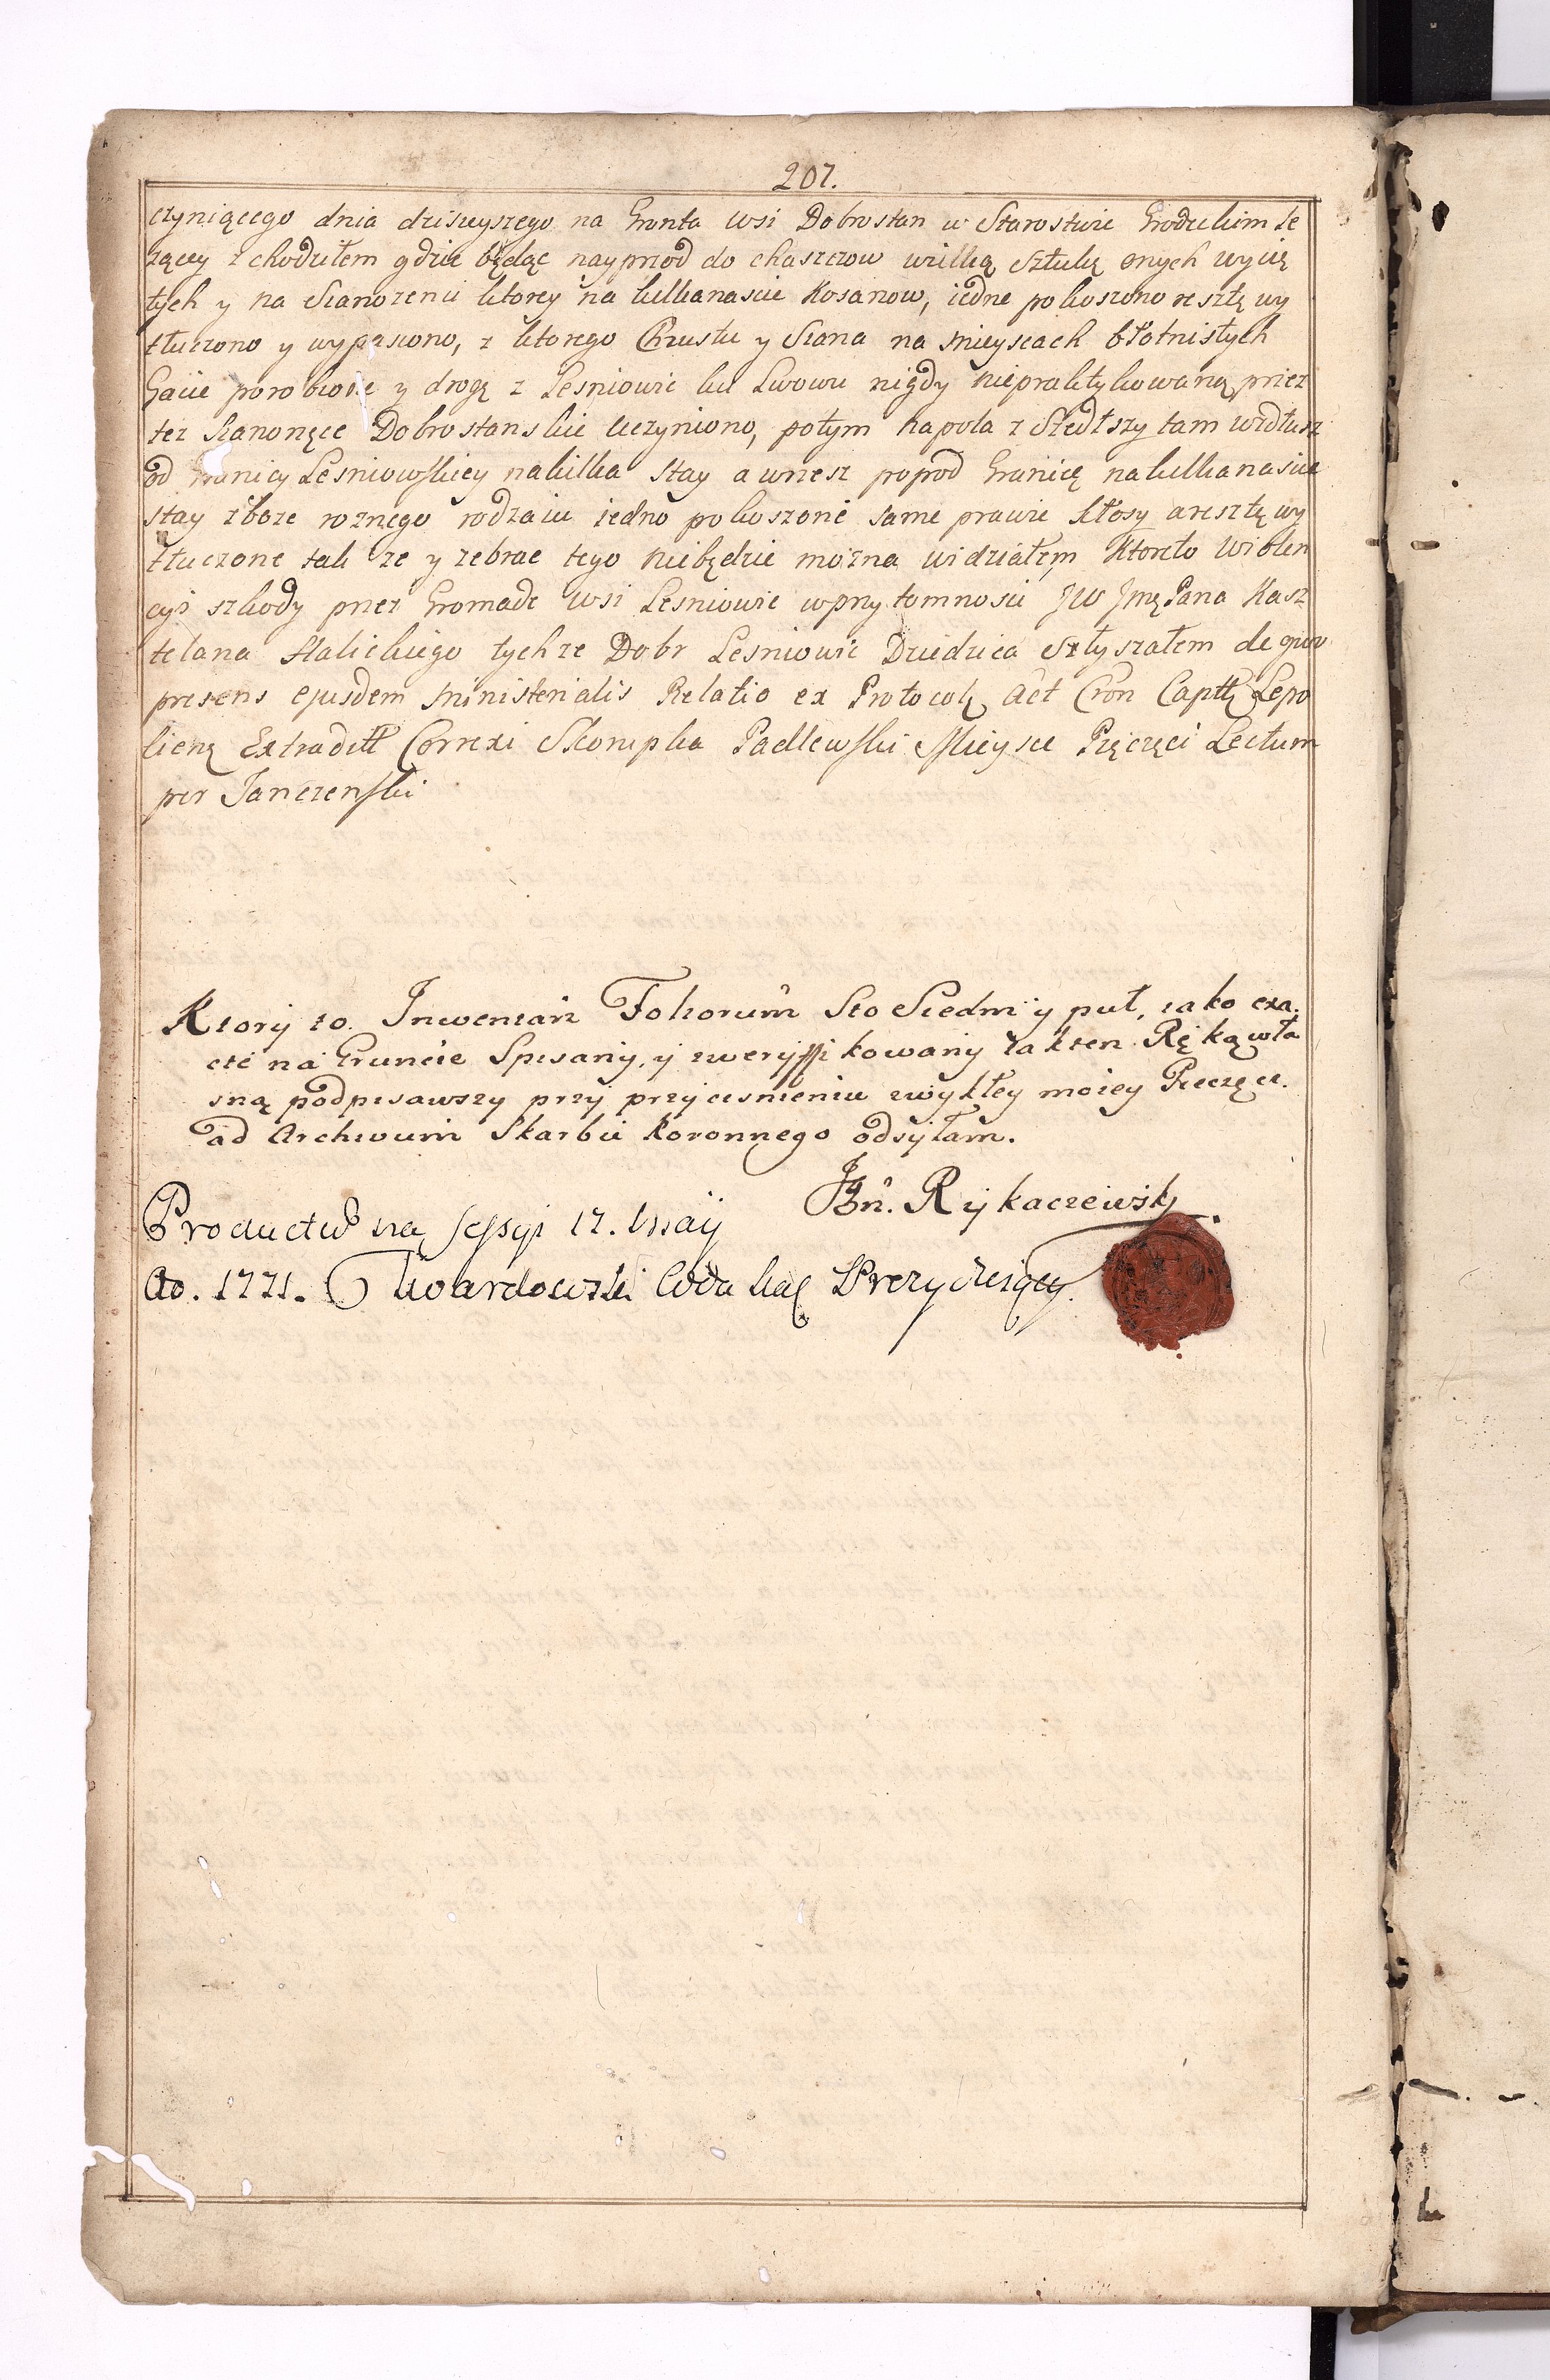 207.
czyniącego dnia dzisieyszego na Gronta wsi Dobrostan w Starostwie Grodeckim le
zącey zchodziłem gdzie będąc nayprzod do chaszczow wielką sztukę onych wycię
tych y na Sianozenci ktorey na kilkanascie Kosarzow, iedne pokoszono resztę wy
tłuczono y wypasiono, z ktorego Chrustu y Siana na mieyscach błotnistych
Gacie porobione y drogę z Lesniowic ku Lwowu nigdy niepraktykowaną przez
tez Sianozęce Dobrostanskie uczyniono, potym napola z Szedłszy tam wzdłusz
od Granicy Lesniowskiey nakilka stay a wszesz popod Granicę nakilkanascie
stay zboze roznego rodzaiu iedno pokoszone same prawie kłosy aresztę wy
tłuczone tak ze y zebrac tego niebędzie mozna widziałem, Ktoreto Wiolen
cyi szkody przez Gromadę wsi Lesniowic wprzytomnosci JW Jmę Pana Kasz
telana Halickiego tychze Dobr Lesniowic Dziedzica Szłyszałem de quo
presens ejusdem Ministerialis Relatio ex Protocolę Act Cŕon Captlę Lepo
lienę Extraditt Correxi Skorupka Padlewski Mieysce Pęczęci Lectum
per Janczenski
Ktory to. Inwentarz Foliorum Sto Siedm y puł, iako cza.
cie na Gruncie Spisany, y zweryffikowany takten Ręką wła
sną podpisawszy przy przycisnieniu zwykłey moiey Pieczęci.
ad Archivum Skarbu Koronnego odsyłam.
Jan. Rykaczewski
Productũ na Sessyi 17. Maÿ
Ao. 1771. Twardowski Prezyduiący.